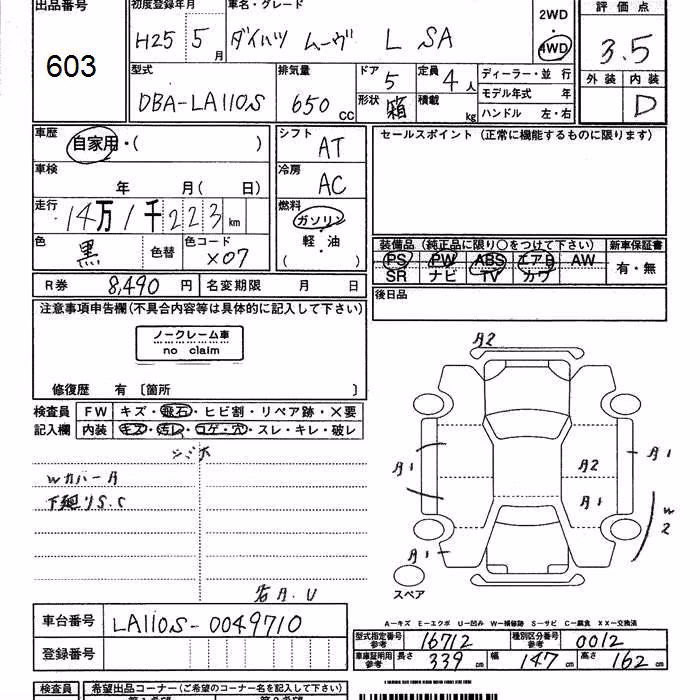 出品番号
603
初度登録年月
H25 5月
車名・グレード
ダイハツ ムーヴ L SA
2WD
4WD
評価点
3.5
外装 内装
D
型式
DBA-LA110S
排気量
650 CC
ドア
5
形状
箱
定員
4人
積載
kg
ディーラー・並 行
モデル年式 年
ハンドル 左・右
車歴
自家用・( )
シフト
AT
セールスポイント (正常に機能するものに限ります)
車検
年 月( 日)
冷房
AC
走行
14万1千223 km
燃料
ガソリン
軽・油
( )
色
黒
色替
色コード
X07
装備品 (純正品に限り○をつけて下さい)
新車保証書
PS PW ABS エアB AW
SR ナビ TV カワ
有・無
R券 8,490 円
名変期限 月 日
後日品
注意事項申告欄(不具合内容等は具体的に記入して下さい)
ノークレーム車
no claim
修復歴 有 〔箇所 〕
検査員
記入欄
FW キズ・飛石・ヒビ割・リペア跡・×要
内装 キズ・汚レ・コゲ・穴・スレ・キレ・破レ
シミホ
Wカバー A
下廻りS.C
若A.U
A2
A1
A1
A2
A1
A1
W2
スペア
A―キズ E―エクボ U―凹み W―補修跡 S―サビ C―腐食 XX―交換済
車台番号
LA110S-0049710
登録番号
型式指定番号
参考
16712
種別区分番号
参考
0012
車庫証明用
参考
長さ 339 cm
幅 147 cm
高さ 162 cm
検査員
希望出品コーナー(ご希望のコーナー名を記入して下さい)